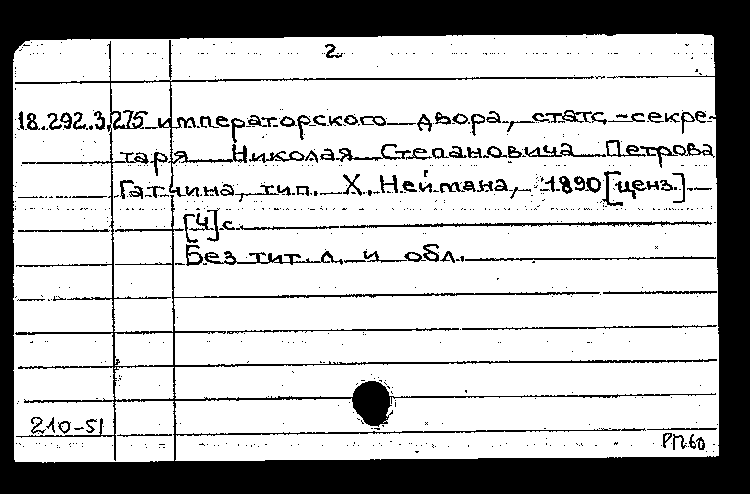 2
18.292.3.275 императорского двора, статс-секре-
таря Николая Степановича Петрова
Гатчина, тип. Х. Неймана, 1890 [ценз.]
[4] с.
Без тит. л. и обл.
210-51